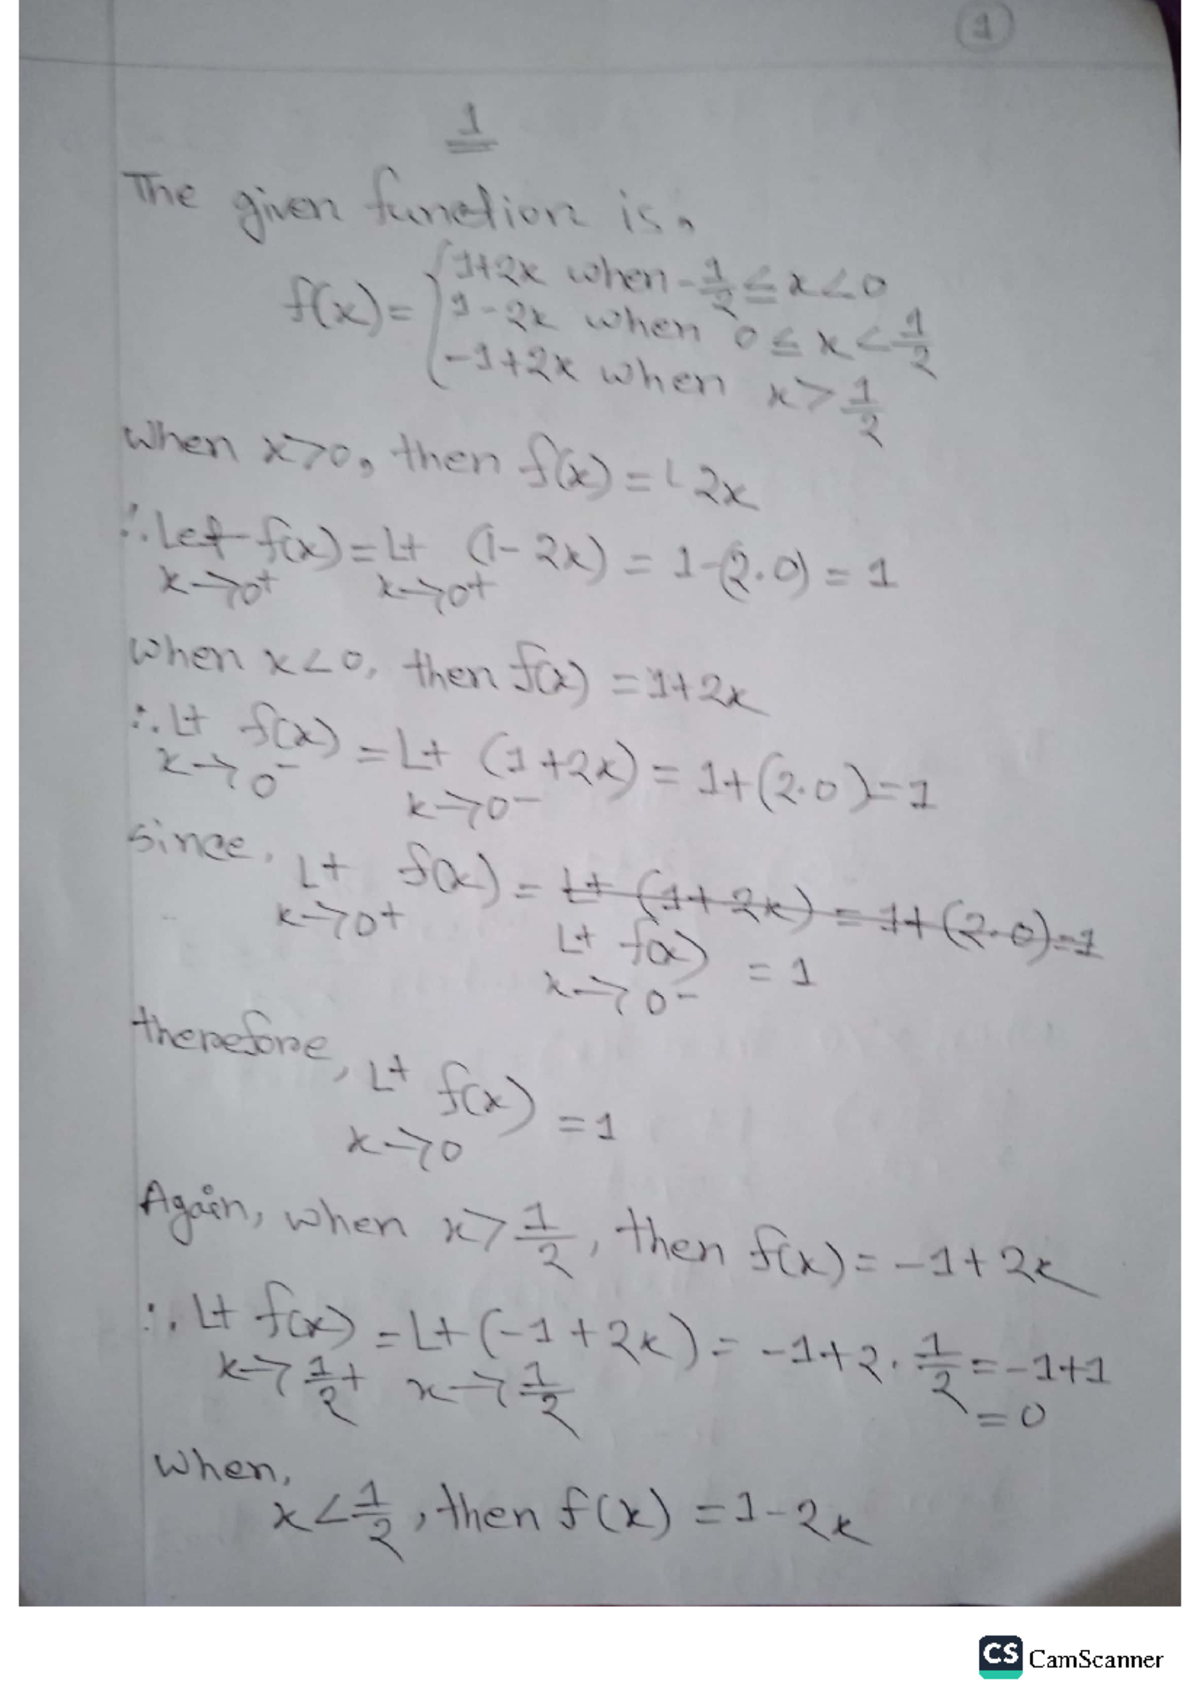 1
1
The given function is,
f(x) = { 1+2x when -1/2 ≤ x < 0
1-2x when 0 ≤ x < 1/2
-1+2x when x > 1/2
when x>0, then f(x) = 1 2x
∴ Let f(x) = Lt (1-2x) = 1-(2.0) = 1
x→0+ x→0+
when x<0, then f(x) = 1+2x
∴ Lt f(x) = Lt (1+2x) = 1+(2.0) = 1
x→0- x→0-
since, Lt f(x) = Lt (1+2x) = 1+(2.0)=1
x→0+ Lt f(x) = 1
x→0-
therefore, Lt f(x) = 1
x→0
Again, when x > 1/2, then f(x) = -1+2x
∴ Lt f(x) = Lt (-1+2x) = -1+2. 1/2 = -1+1
x→1/2+ x→1/2 = 0
when,
x < 1/2, then f(x) = 1-2x
CS CamScanner